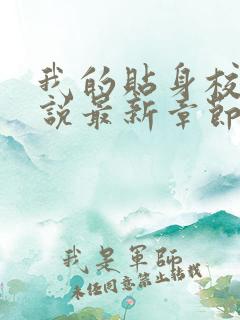 我的貼身校
說最新章節
我是軍師
未經同意禁止轉載